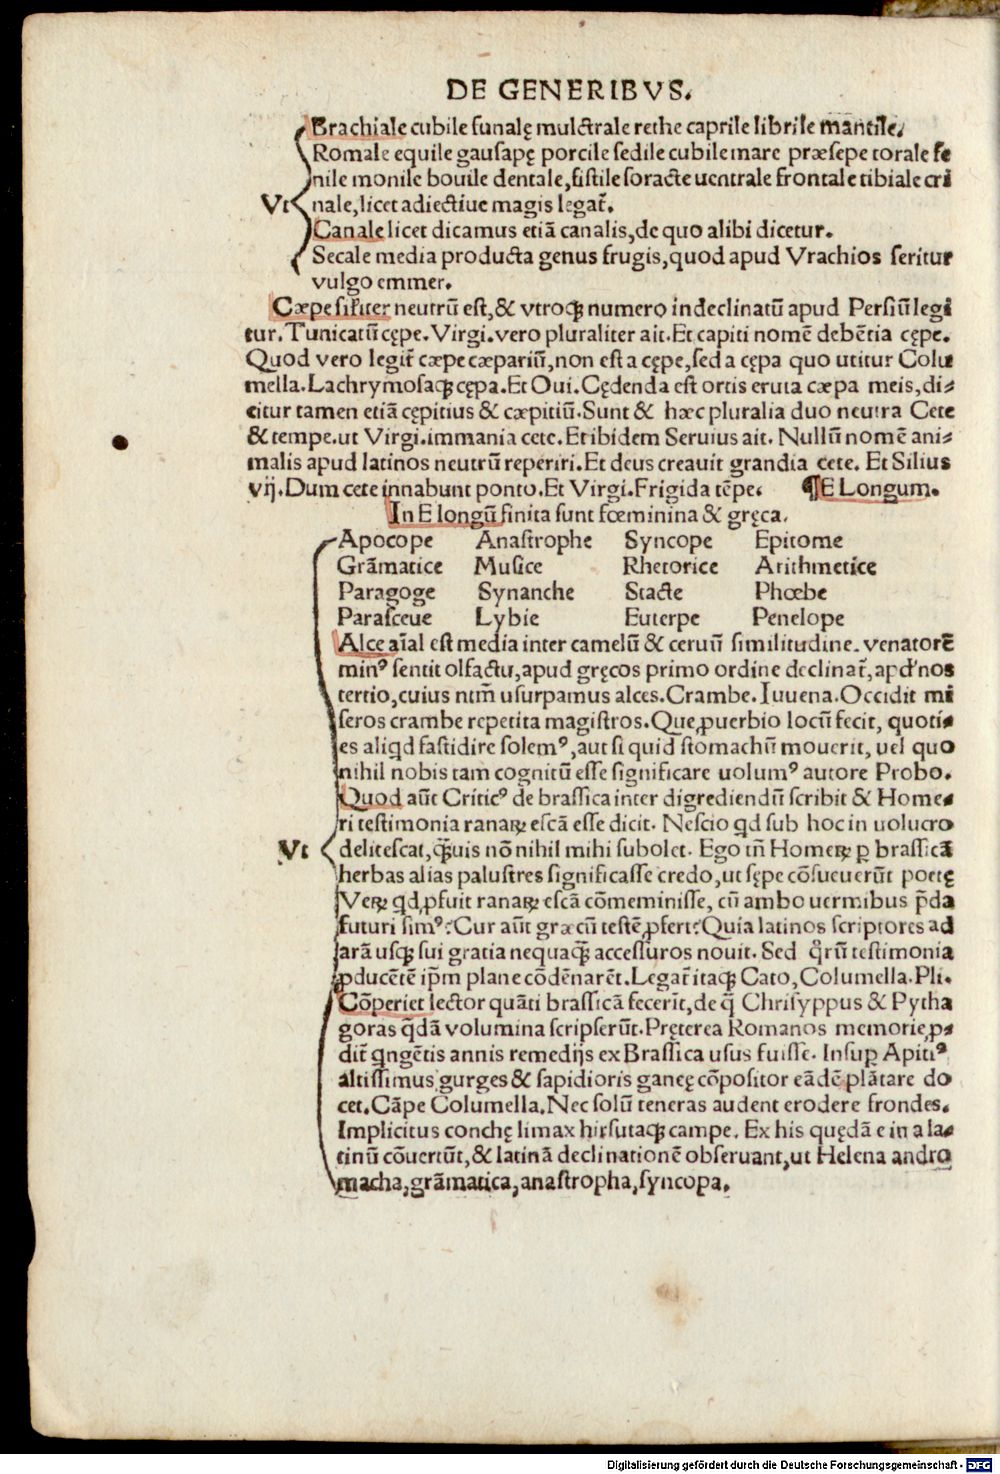 DE GENERIBVS.
Brachiale cubile sunalę mulctrale rethe caprile librile mantile.
Romale equile gausapę porcile sedile cubile mare præsepe torale fe
nile monile bouile dentale, fistile soracte uentrale frontale tibiale cri
Vt nale, licet adiectiue magis legat̃.
Canale licet dicamus etiã canalis, de quo alibi dicetur.
Secale media producta genus frugis, quod apud Vrachios seritur
vulgo emmer.
Cæpe siłiter neutrũ est, & vtroqꝫ numero indeclinatũ apud Persiũ legi
tur. Tunicatũ cępe. Virgi. vero pluraliter ait. Et capiti nomẽ debẽtia cępe.
Quod vero legit̃ cæpe cæpariũ, non est a cępe, sed a cępa quo utitur Colu
mella. Lachrymosaqꝫ cępa. Et Oui. Cędenda est ortis eruta cæpa meis, di⸗
citur tamen etiã cępitius & cæpitiũ. Sunt & hæc pluralia duo neutra Cete
& tempe. ut Virgi. immania cete. Et ibidem Seruius ait. Nullũ nomẽ ani⸗
malis apud latinos neutrũ reperiri. Et deus creauit grandia cete. Et Silius
vij. Dum cete innabunt ponto. Et Virgi. Frigida tẽpe. ¶E Longum.
In E longũ finita sunt fœminina & gręca.
Apocope Anastrophe Syncope Epitome
Grãmatice Musice Rhetorice Arithmetice
Paragoge Synanche Stacte Phœbe
Parasceue Lybie Euterpe Penelope
Alce aĩal est media inter camelũ & ceruũ similitudine. venatorẽ
minꝰ sentit olfactu, apud gręcos primo ordine declinat̃, apd' nos
tertio, cuius ntm̃ usurpamus alces. Crambe. Iuuena. Occidit mi
seros crambe repetita magistros. Que ꝓuerbio locũ fecit, quoti⸗
es aliqd fastidire solemꝰ, aut si quid stomachũ mouerit, uel quo
nihil nobis tam cognitũ esse significare uolumꝰ autore Probo.
Quod aũt Criticꝰ de brassica inter digrediendũ scribit & Home⸗
ri testimonia ranaꝝ escã esse dicit. Nescio qd sub hoc in uolucro
Vt delitescat, qꝫ̃uis nõ nihil mihi subolet. Ego tñ Homeꝝ ꝑ brassicã
herbas alias palustres significasse credo, ut sępe cõsueuerũt poetę
Veꝝ qd ꝓfuit ranaꝝ escã cõmeminisse, cũ ambo uermibus p̃da
futuri simꝰ? Cur aũt græcũ testẽ ꝓfert? Quia latinos scriptores ad
arã usqꝫ sui gratia nequaqꝫ̃ accessuros nouit. Sed qr̃ũ testimonia
ꝓducẽtẽ ip̃m plane cõdẽnarẽt. Legat̃ itaqꝫ Cato, Columella. Pli.
Cõperiet lector quãti brassicã fecerĩt, de q̃ Chrisyppus & Pytha
goras qdã volumina scripserũt. Pręterea Romanos memorie, p⸗
dit̃ qngẽtis annis remedijs ex Brassica usus fuisse. Insuꝑ Apitiꝰ
altissimus gurges & sapidioris ganeę cõpositor eãdẽ plãtare do
cet. Cãpe Columella. Nec solũ teneras audent erodere frondes.
Implicitus conchę limax hirsutaqꝫ campe. Ex his quędã e in a la⸗
tinũ cõuertũt, & latinã declinationẽ obseruant, ut Helena andro
macha, grãmatica, anastropha, syncopa.
Digitalisierung gefördert durch die Deutsche Forschungsgemeinschaft - DFG